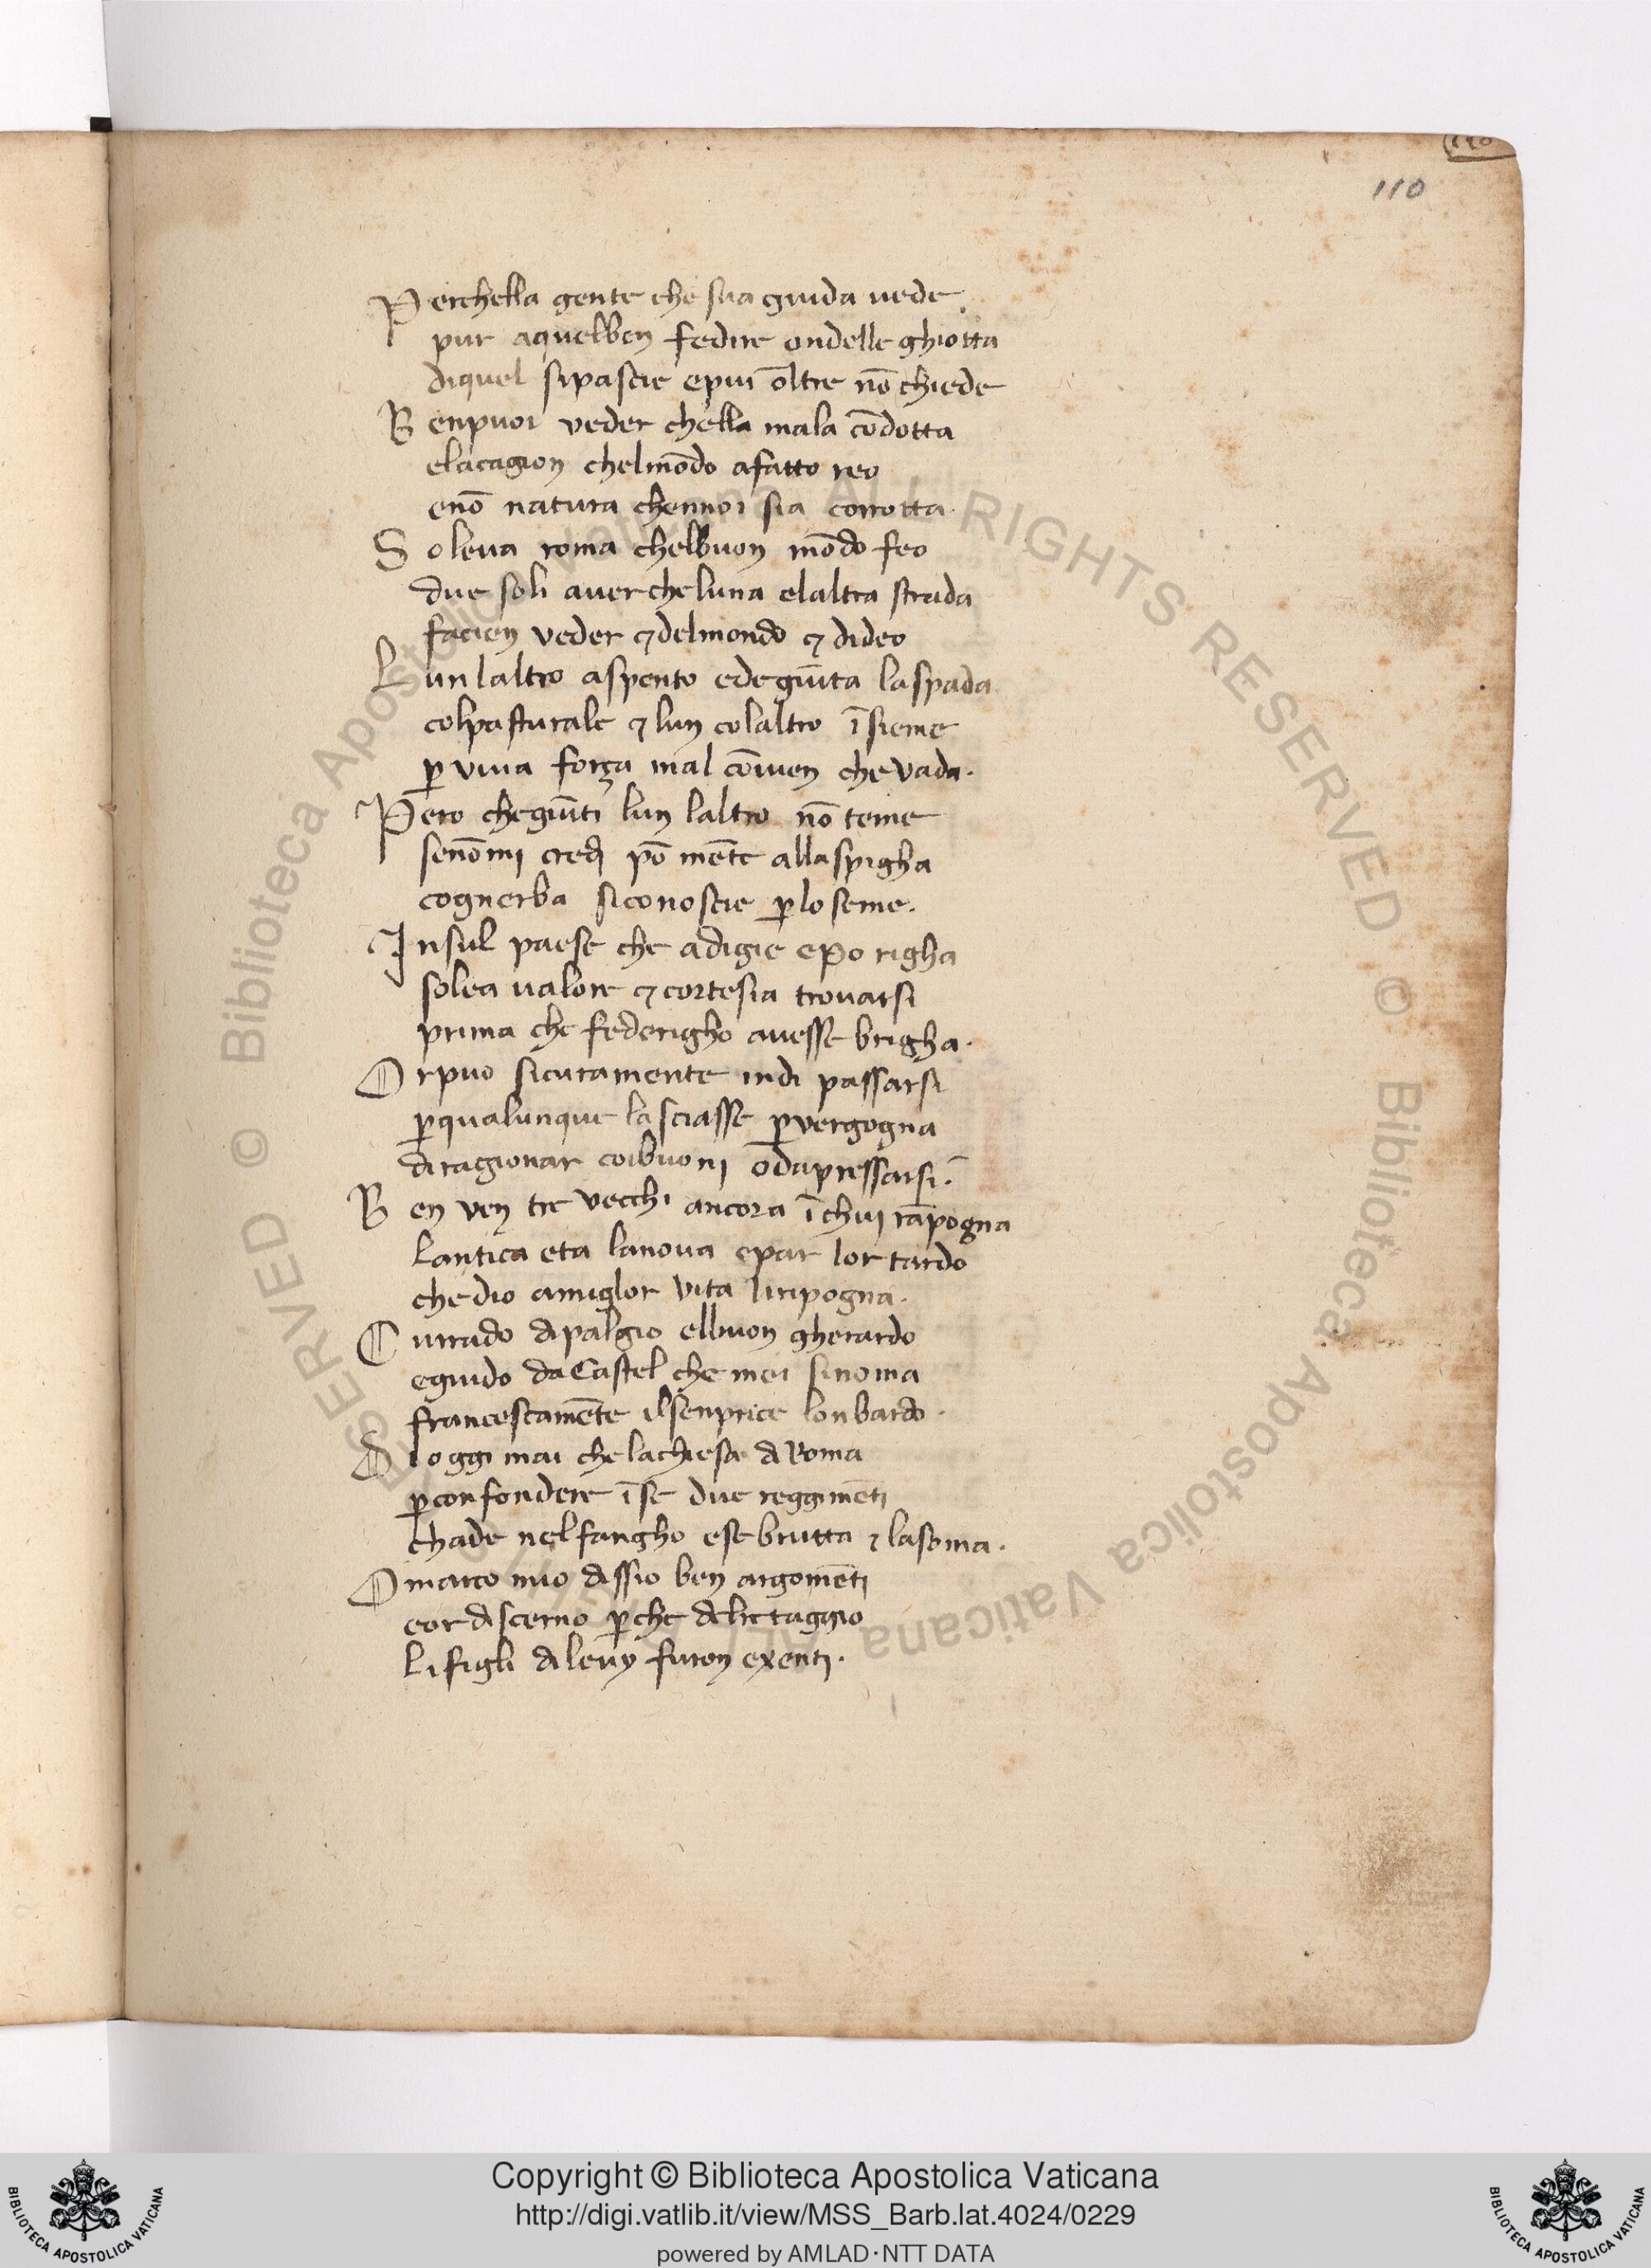 110
Perchella gente che sua guida uede
pur aquelben fedire ondelle ghiotta
diquel sipascie epiu oltre nō chiede
Benpuoi veder chella mala cōdotta
elacagion chelmōdo afatto reo
enō natura chennoi sia corrotta.
Soleua roma chelbuon mōdo feo
due soli auer cheluna elaltra strada
facien veder & delmondo & dideo
Lun laltro aspento edegiūta laspada
colpasturale & lun colaltro īsieme
ꝑ viua força mal cōuien che vada.
Pero chegiūti lun laltro nō teme
senōmi credi pō mēte allaspigha
cognerba siconoscie ꝑ lo seme.
Insul paese che adigie epo righa
solea ualore & cortesia trouarsi
prima che federigho auesse brigha.
Orpuo sicuramente indi passarsi
ꝑqualunque lasciasse ꝑvergogna
diragionar coibuoni odapressarsi.
Ben ven tre vecchi ancora īchui rāpogna
Lantica eta lanoua epar lor tardo
chedio amiglor vita liripogna.
Currado dipalgio elbuon gherardo
eguido da Castel che mei sinoma
francescamēte ilsenprice lonbardo.
Di oggi mai che lachiesa di Roma
ꝑconfondere īse due reggimēti
chade nelfangho ese brutta & lasoma.
O marco mio dissio ben argomēti
eor discerno ꝑche dalretaggio
Li figli dileuy furon exenti.
© Biblioteca Apostolica Vaticana ALL RIGHTS RESERVED © Biblioteca Apostolica Vaticana ALL RIGHTS RESERVED
Copyright © Biblioteca Apostolica Vaticana
http://digi.vatlib.it/view/MSS_Barb.lat.4024/0229
powered by AMLAD·NTT DATA
BIBLIOTECA APOSTOLICA VATICANA
BIBLIOTECA APOSTOLICA VATICANA